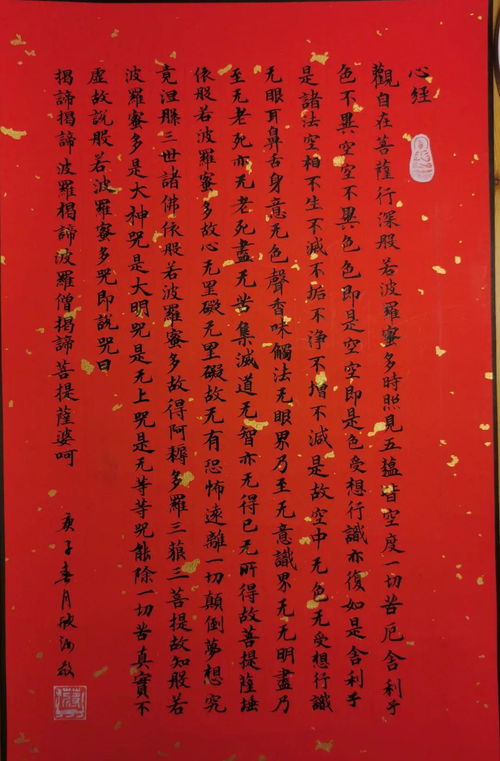 心經
觀自在菩薩行深般若波羅蜜多時照見五蕴皆空度一切苦厄舍利子
色不異空空不異色色即是空空即是色受想行識亦復如是舍利子
是諸法空相不生不滅不垢不浄不增不滅是故空中无色无受想行識
无眼耳鼻舌身意无色聲香味觸法无眼界乃至无意識界无无明盡乃
至无老死亦无老死盡无苦集滅道无智亦无得已无所得故菩提薩埵
依般若波羅蜜多故心无罣礙无罣礙故无有恐怖遠離一切顛倒夢想究
竟涅槃三世諸佛依般若波羅蜜多故得阿耨多羅三藐三菩提故知般若
波羅蜜多是大神咒是大明咒是无上咒是无等等咒能除一切苦真實不
虛故說般若波羅蜜多咒即說咒曰
揭諦揭諦波羅揭諦波羅僧揭諦菩提薩婆呵
庚子春月